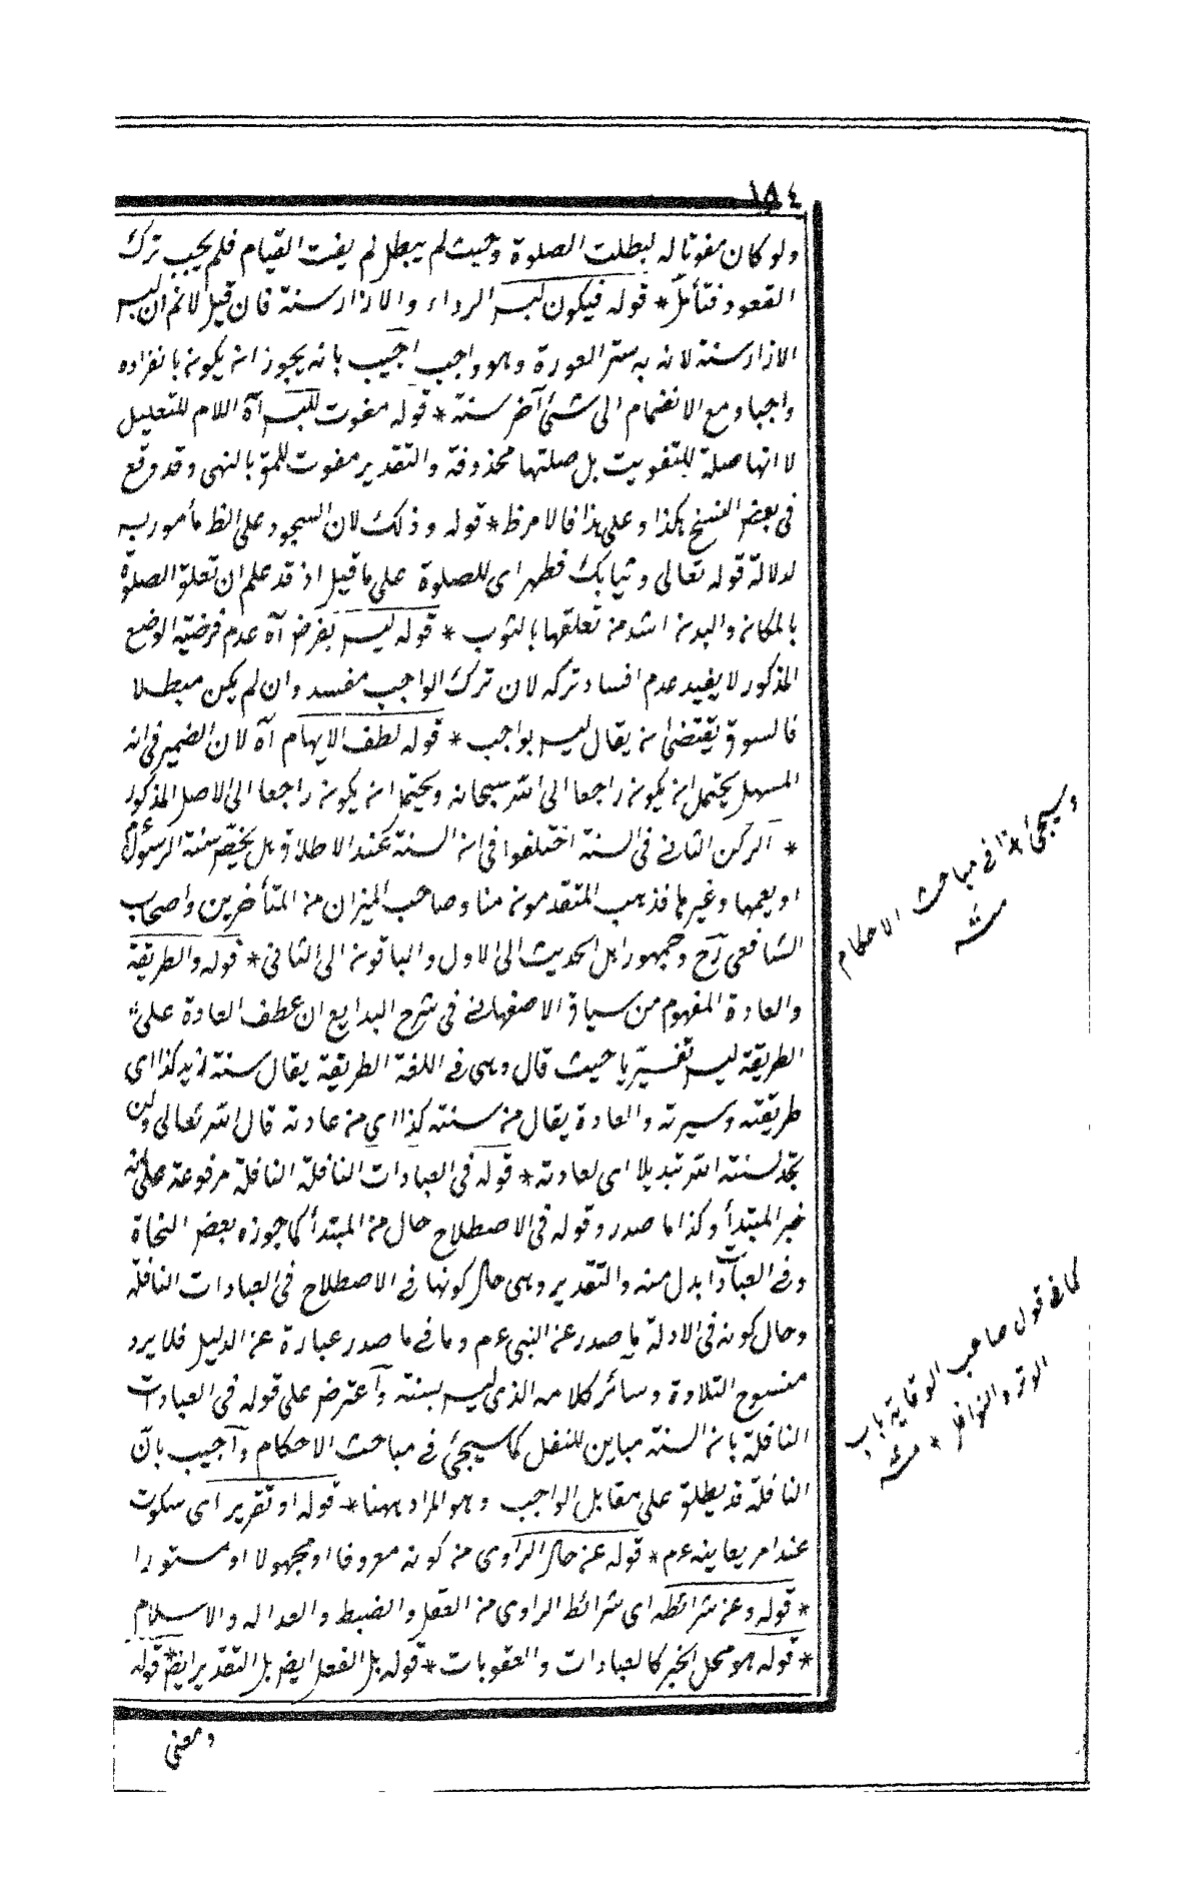 ١٥٤
ولو كان مفوتا له لبطلت الصلوة وحيث لم يبطل لم يفت القيام فلم يجب ترك
القعود فتأمل * قوله فيكون لبس الرداء والازار سنة فان قيل لانم ان لبس
الازار سنة لانه به ستر العورة وهو واجب اجيب بانه يجوز ان يكون بانفراده
واجبا ومع الانضمام الى شئ آخر سنة * قوله مفوت للبس آه اللام للتعليل
لا انها صلة للتفويت بل صلتها محذوفة والتقدير مفوت للمق بالنهى وقد وقع
فى بعض النسخ هكذا وعلى هذا فالامر ظ * قوله وذلك لان السجود على الظ مأمور به
لدلالة قوله تعالى وثيابك فطهر اى للصلوة على ما قيل اذ قد علم ان تعلق الصلوة
بالمكان والبدن اشد من تعلقها بالثوب * قوله ليس بفرض آه عدم فرضية الوضع
المذكور لا يفيد عدم افساد تركه لان ترك الواجب مفسد وان لم يكن مبطلا
فالسوق يقتضى ان يقال ليس بواجب * قوله لطف الايهام آه لان الضمير فى انه
المسهل يحتمل ان يكون راجعا الى الله سبحانه ويحتمل ان يكون راجعا الى الاصل المذكور
* الركن الثانى فى السنة اختلفوا فى ان السنة عند الاطلاق بل يختص سنة الرسول
او يعمها وغيرها فذهب المتقدمون منا وصاحب الميزان من المتأخرين واصحاب
الشافعى رح وجمهور اهل الحديث الى الاول والباقون الى الثانى * قوله والطريقة
والعادة المفهوم من سياق الاصفهانى فى شرح البدايع ان عطف العادة على
الطريقة ليس تفسيريا حيث قال وهى فى اللغة الطريقة يقال سنة زيد كذا اى
طريقته وسيرته والعادة يقال من سنته كذا اى من عادته قال الله تعالى ولن
تجد لسنة الله تبديلا اى لعادته * قوله فى العبادات النافلة النافلة مرفوعة على انه
خبر المبتدأ وكذا ما صدر وقوله فى الاصطلاح حال من المبتدأ كما جوزه بعض النحاة
وفى العبادات بدل منه والتقدير وهى حال كونها فى الاصطلاح فى العبادات النافلة
وحال كونه فى الادلة ما صدر عن النبى ءم وما فى ما صدر عبارة عن الدليل فلا يرد
منسوخ التلاوة وسائر كلامه الذى ليس بسنة واعترض على قوله فى العبادات
النافلة بان السنة مباين للنفل كما سيجئ فى مباحث الاحكام واجيب بان
النافلة قد يطلق على مقابل الواجب وهو المراد ههنا * قوله او تقرير اى سكوت
عند امر يعاينه ءم * قوله عن حال الراوى من كونه معروفا او مجهولا او مستورا
* قوله وعن شرائطه اى شرائط الراوى من العقل والضبط والعدالة والاسلام
* قوله هو محل الخبر كالعبادات والعقوبات * قوله بل الفعل ايض بل التقدير ايض * قوله
ومعنى
وسيجئ هذا فى مباحث الاحكام
منه
كما فى قول صاحب الوقاية باب
الوتر والنوافل * منه